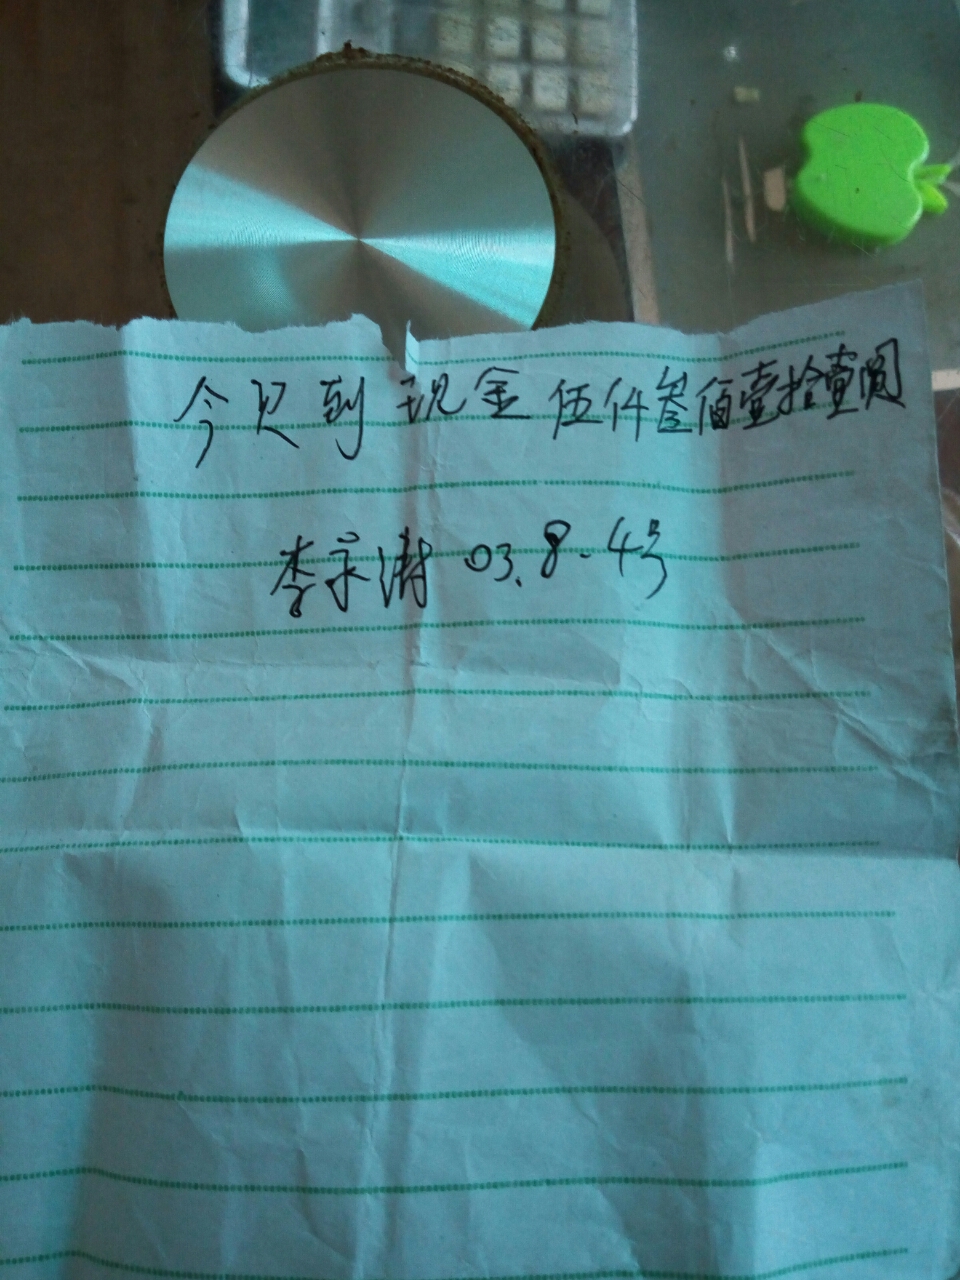 今只到现金伍仟叁佰壹拾壹圆
李宗涛 03.8.4号